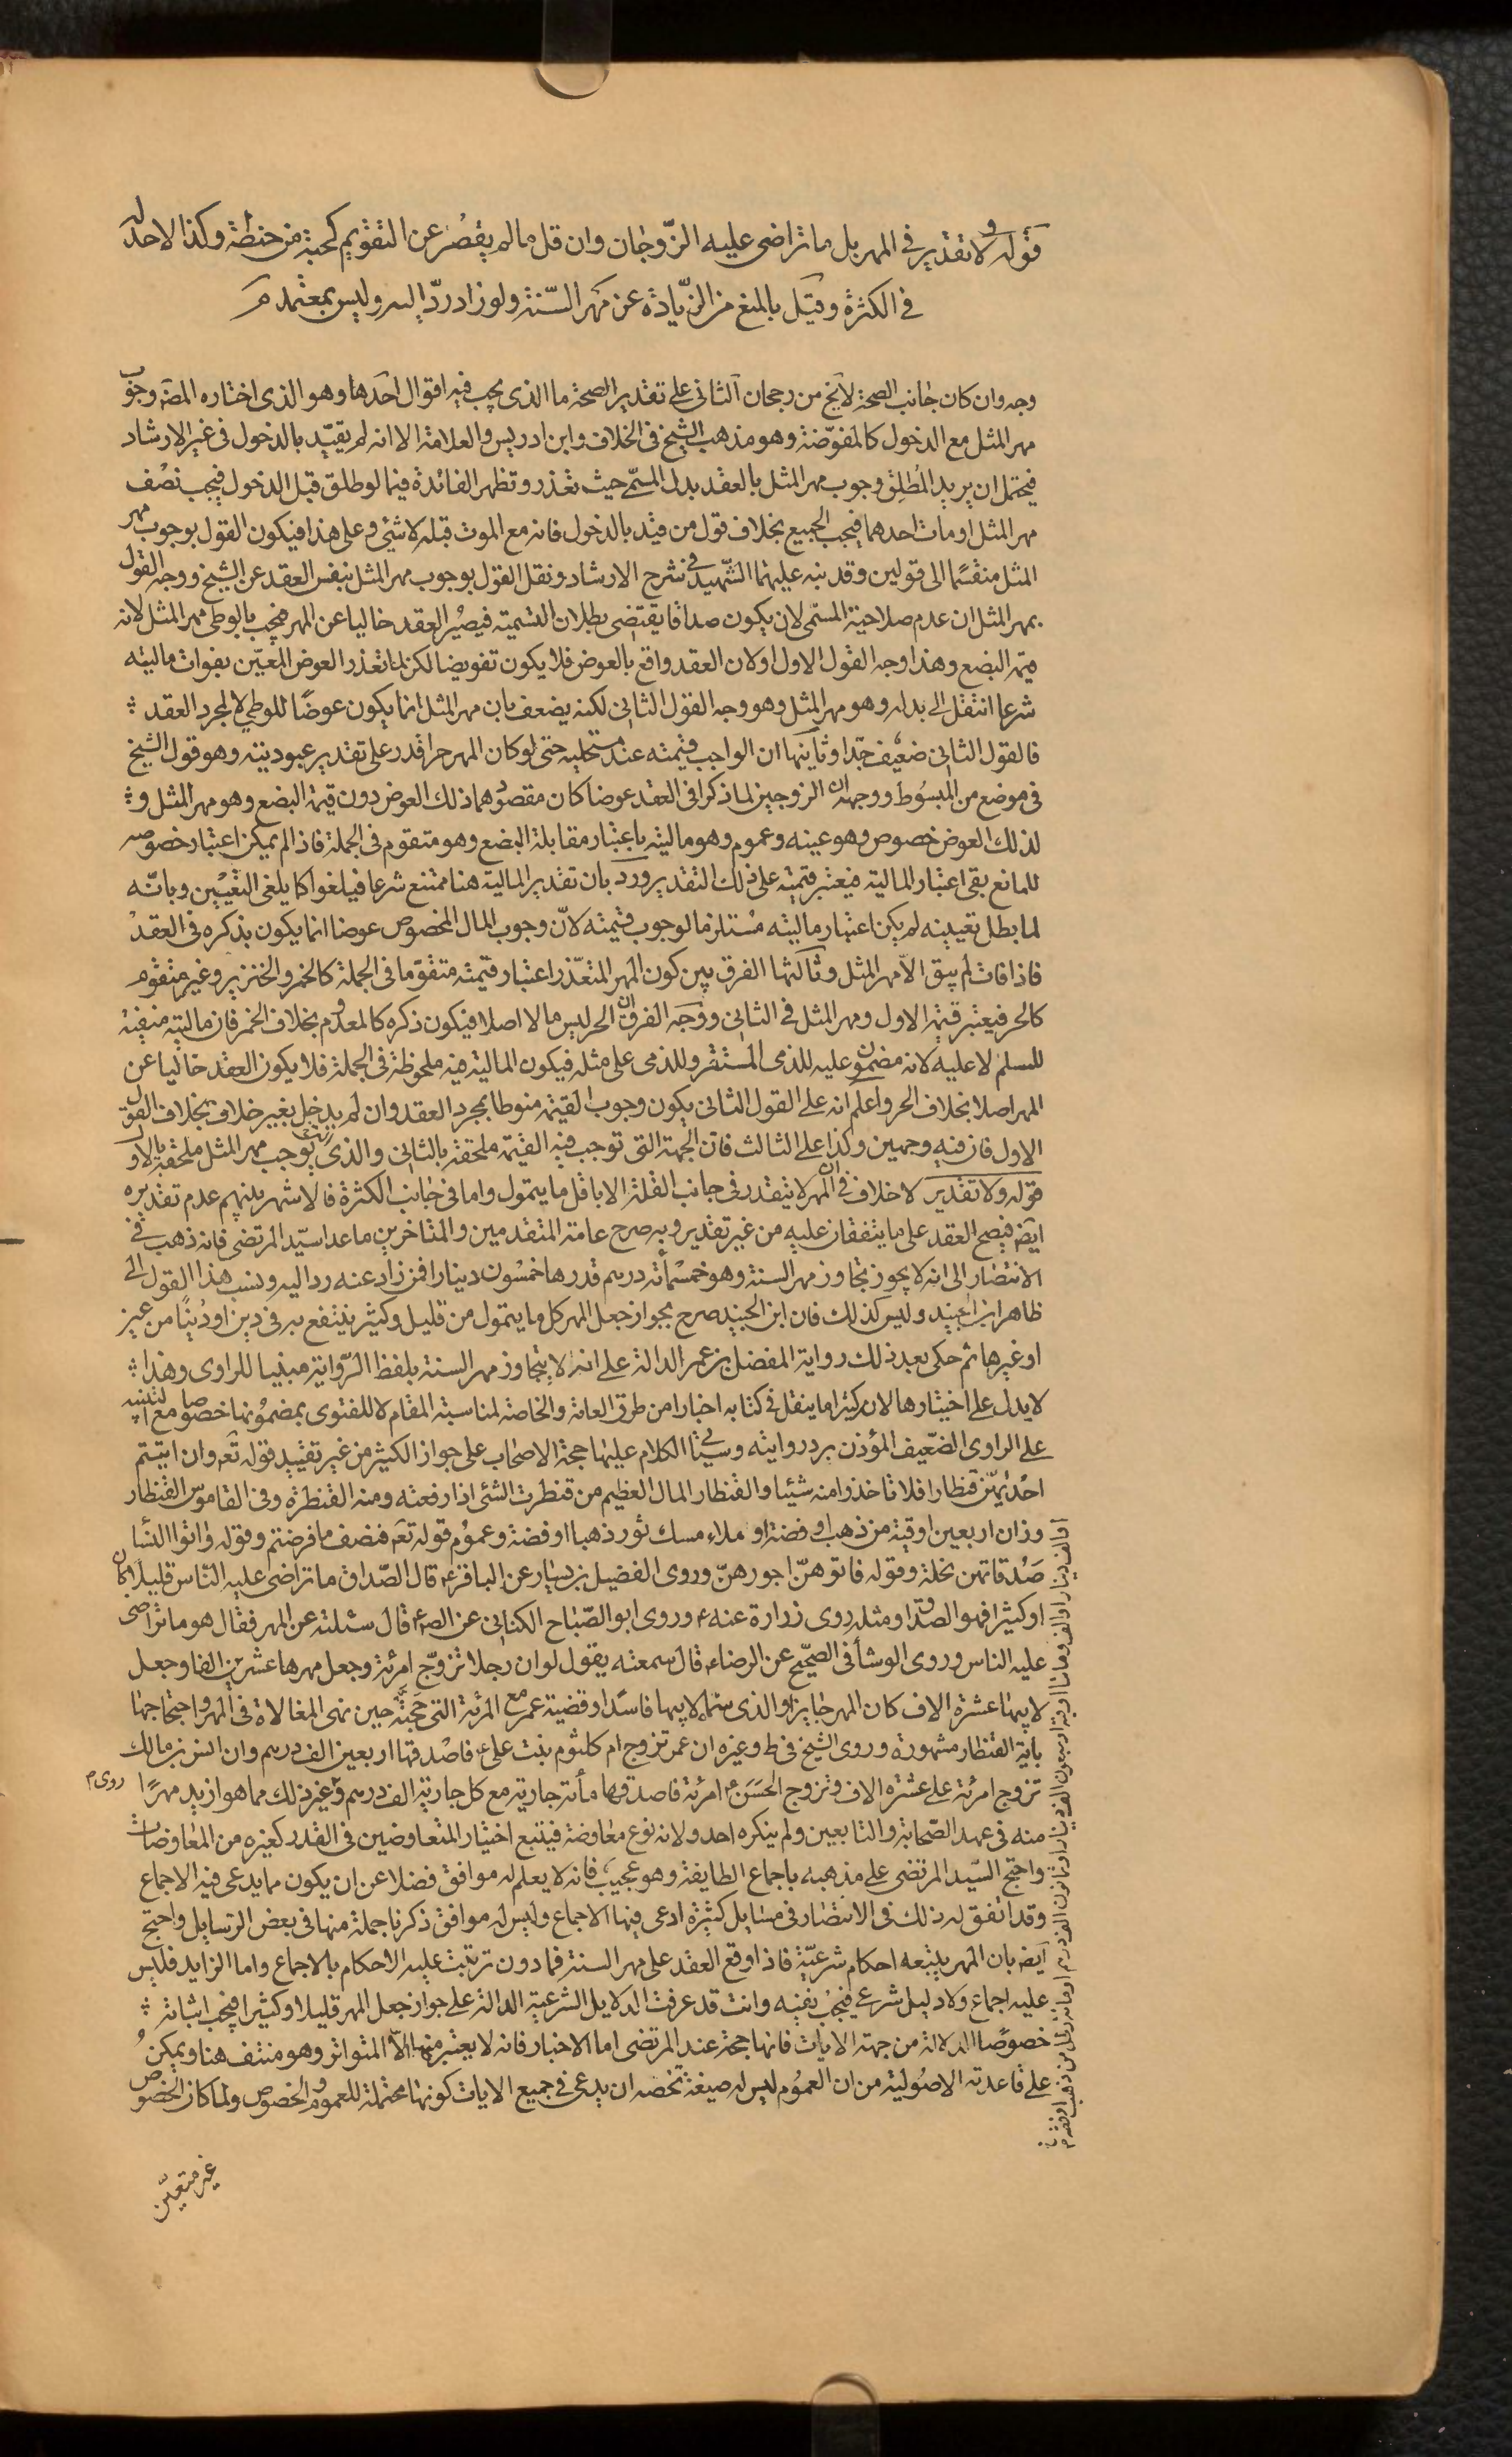 قوله ولا تقدير في المهر بل ما تراضى عليه الزّوجان وان قل ما لم يقصُر عن التقويم كحبة من حنطة وكذا لا حد له
في الكثرة وقيل بالمنع من الزّيادة عن مَهر السّنة ولو زاد ردّ اليه وليس بمعتمد
وجه وان كان جانب الصحة لا يخ من رجحان الثاني على تقدير الصحة ما الذي يجب فيه اقوال احدها وهو الذي اختاره المصَ وجوب
مهر المثل مع الدخول كالمفوّضة وهو مذهب الشيخ في الخلاف وابن ادريس والعلامة الا انه لم يقيّد بالدخول في غير الارشاد
فيحتمل ان يريد المُطلِق وجوب مهر المثل بالعقد بدل المسمّى حيث تعذر وتظهر الفائدة فيما لو طلق قبل الدخول فيجب نصْف
مهر المثل او مات احدهما فيجب الجميع بخلاف قول من قيد بالدخول فانه مع الموت قبله لا شئ وعلى هذا فيكون القول بوجوب مهر
المثل منقسمًا الى قولين وقد نبه عليهما الشّهيد في شرح الارشاد ونقل القول بوجوب مهر المثل بنفس العقد عن الشيخ ووجه القول
بمهر المثل ان عدم صلاحية المسمّى لان يكون صداقا يقتضي بطلان التسمية فيصيُر العقد خاليا عن المهر فيجب بالوطي مهر المثل لانه
قيمة البضع وهذا وجه القول الاول او لان العقد واقع بالعوض فلا يكون تفويضا لكن لما تعذر العوض المعيّن بفوات ماليته
شرعا انتقل الى بدله وهو مهر المثل وهو وجه القول الثاني لكنه يضعف بان مهر المثل انما يكون عوضًا للوطي لا لمجرد العقد
فالقول الثاني ضعيف جدّا وثانيها ان الواجب قيمته عند مستحليه حتى لو كان المهر حرا قدر على تقدير عبوديته وهو قول الشيخ
في موضع من المبسُوط ووجهه ان الزوجين لما ذكرا في العقد عوضا كان مقصودُهما ذلك العوض دون قيمة البضع وهو مهر المثل و
لذلك العوض خصوص وهو عينه وعموم وهو ماليته باعتبار مقابلة البضع وهو متقوم في الجملة فاذا لم يمكن اعتبار خصوصه
للمانع بقى اعتبار المالية فيعتبر قيمته على ذلك التقدير ورد بان تقدير المالية هنا ممتنع شرعا فيلغوا كما يلغى التعيين وبانّه
لما بطل تعيينه لم يكن اعتبار ماليته مُستلزما لوجوب قيمته لانّ وجوب المال المخصوص عوضا انما يكون بذكره في العقد
فاذا فات لم يبق الاّ مهر المثل وثالثها الفرق بين كون المهر المتعذّر اعتبار قيمته متقوّما في الجملة كالخمر والخنزير وغير متقوم
كالحر فيعتبر قيمة الاول ومهر المثل في الثاني ووَجَه الفرق ان الحر ليس مالا اصلا فيكون ذكره كالمعدوم بخلاف الخمر فان ماليته منفية
للمسلم لا عليه لانه مضمون عليه للذمي المستتر وللذمي على مثله فيكون المالية فيه ملحوظة في الجملة فلا يكون العقد خاليا عن
المهر اصلا بخلاف الحر واعلم انه على القول الثاني يكون وجوب القيمة منوطا بمجرد العقد وان لم يدخل بغير خلاف بخلاف القول
الاول فان فيه وجهين وكذا على الثالث فان الجهة التي توجب فيه القيمة ملحقة بالثاني والذي يوجب مهر المثل ملحقة بالاول
قوله ولا تقدير لا خلاف في ان المهر لا يتقدر في جانب القلة الا باقل ما يتمول واما في جانب الكثرة فالاشهر بينهم عدم تقديره
ايضَ فيصح العقد على ما يتفقان عليه من غير تقدير وبه صرح عامة المتقدمين والمتاخرين ما عدا سيّد المرتضى فانه ذهب في
الانتصار الى انه لا يجوز تجاوز مهر السنة وهو خمسمُأته درهم قدرها خمسُون دينارا فمن زاد عنه رد اليه ونسب هذا القول الى
ظاهر ابن الجنيد وليس كذلك فان ابن الجنيد صرح بجواز جعل المهر كل ما يتمول من قليل وكثير ينتفع به في دين او دُنيًا من عين
او غيرها ثم حكى بعد ذلك رواية المفضل بن عمر الدالة على انه لا يتجاوز مهر السنة بلفظ الرّواية مبنيا للراوي وهذا
لا يدل على اختيارها لانه كثيرا ما ينقل في كتابه اخبارا من طرق العامة والخاصة لمناسبة المقام لا للفتوى بمضمونها خصُوصا مع تنبيهه
على الراوي الضّعيف المؤذن برد روايته وسيأتي الكلام عليها حجة الاصحاب على جواز الكثير من غير تقييد قوله تعَه وان اتيتم
احدٰيهنّ قنطارا فلا تاخذوا منه شيئا والقنطار المال العظيم من قنطرت الشئ اذا رفعته ومنه القنطرة وفي القاموس القنطار
وزان اربعين اوقية من ذهب او فضة او ملاء مسك ثور ذهبا او فضة وعمُوم قوله تعَه فنصف ما فرضتم وقوله واٰتوا النسّاء
صَدُقاتهن نحلة وقوله فاتوهنّ اجورهنّ وروى الفضيل بن يسار عن الباقر ع قال الصّداق ما تراضى عليه النّاس قليلا كان
او كثيرا فهو الصداق ومثله روى زرارة عنه ع وروى ابو الصّباح الكناني عن الص ع قال سئلته عن المهر فقال هو ما تراضى
عليه الناس وروى الوشا في الصحّيح عن الرضا ع قال سمعته يقول لو ان رجلا تزوّج امرئة وجعل مهرها عشرين الفا وجعل
لابيها عشرة الاف كان المهر جايزا والذي سمّاه لابيها فاسدًا وقضية عمر مع المرئة التي حَجَّتْه حين نهى المغالاة في المهر واحتجاجها
باية القنطار مشهورة وروى الشيخ في ط وغيره ان عمر تزوج ام كلثوم بنت على ع فاصْدقها اربعين الف درهم وان انس بن مالك
تزوج امرئة على عشرة الاف وتزوج الحَسَن ع امرئة فاصدقها مأته جارية مع كل جارية الف درهم وغير ذلك مما هو ازيد مهرًا
روى م
منه في عهد الصّحابة والتابعين ولم ينكره احد ولانه نوع معاوضة فيتبع اختيار المتعاوضين في القدر كغيره من المعاوضات
واحتج السّيد المرتضى على مذهبه باجماع الطايفة وهو عجيب فانه لا يعلم له موافق فضلا عن ان يكون مما يدعى فيه الاجماع
وقد اتفق له ذلك في الانتصار في مسٰايل كثيرة ادعى فيها الاجماع وليس له موافق ذكرنا جملة منها في بعض الرّسايل واحتج
ايضَ بان المهر يتبعه احكام شرعيّة فاذا وقع العقد على مهر السنة فما دون ترتبت عليه الاحكام بالاجماع واما الزايد فليس
عليه اجماع ولا دليل شرعي فيجب نفيه وانت قد عرفت الدلايل الشرعية الدالة على جواز جعل المهر قليلا او كثيرا فيجب اثباته
خصوصًا الدلالة من جهة الايات فانها حجة عند المرتضى اما الاخبار فانه لا يعتبر منها الاّ المتواتر وهو منتف هنا ويمكنُ
على قاعدته الاصُولية من ان العموُم ليس له صيغة تخصه ان يدعى في جميع الايات كونها محتملة للعموم والخصوص ولما كان الخصوص
غير متعيّن
او الف دينار او الف ومائتا اوقية او سبعون الف دينار او ثمانون الف درهم او مائة رطل من ذهب او فضة